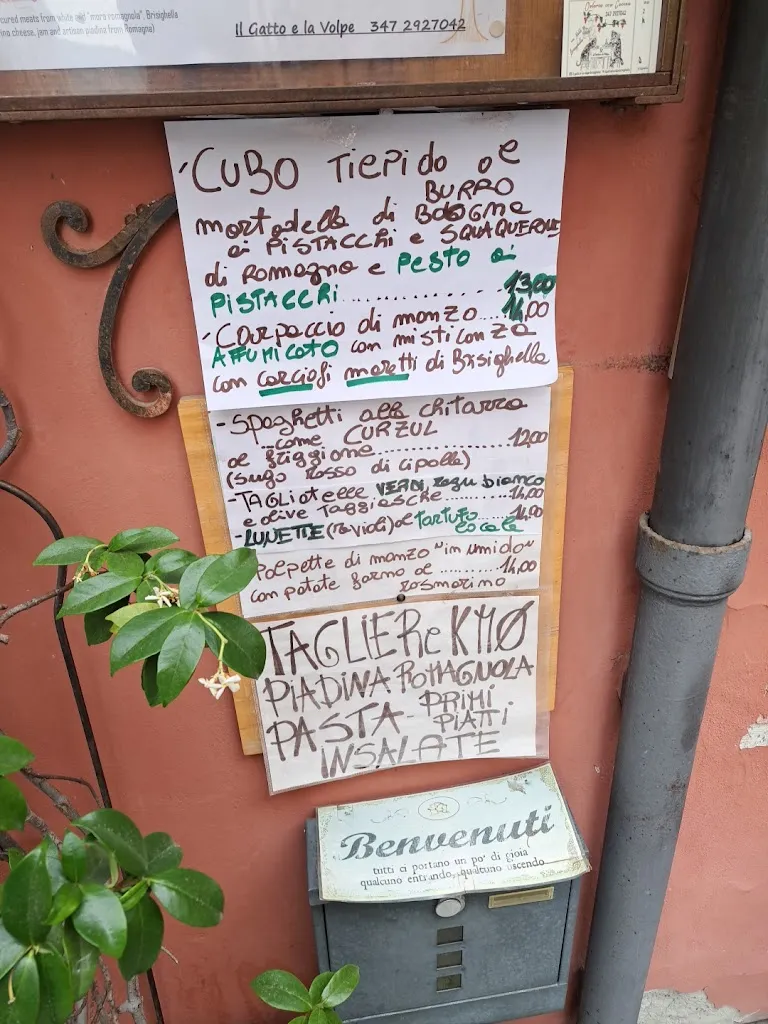 cured meats from white and "mora romagnola", Brisighella
cheese, jam and artisan piadina from Romagna)
Il Gatto e la Volpe 347 2927042
-CUBO TIEPIDO DE
BURRO
mortadella di BOLOGNA
ai PISTACCHI e SQUAQUERONE
di Romagna e PESTO ai
PISTACCHI.......... 13,00
-Carpaccio di manzo...14,00
AFFUMICATO con misticanza
con carciofi moretti di Brisighella
-Spaghetti alla chitarra
...come CURZUL
al friggione.............. 12,00
(sugo rosso di cipolla)
-TAGLIATELLE VERDI, ragu bianco
e olive TAGGIASCHE.......14,00
-LUNETTE (ravioli) al tartufo 14,00
locale
Polpette di manzo "in umido"
con patate forno al ......14,00
rosmarino
TAGLIERe KMØ
PIADINA ROMAGNOLA
PASTA - PRIMI
PIATTI
INSALATE
Benvenuti
tutti ci portano un po' di gioia
qualcuno entrando, qualcuno uscendo